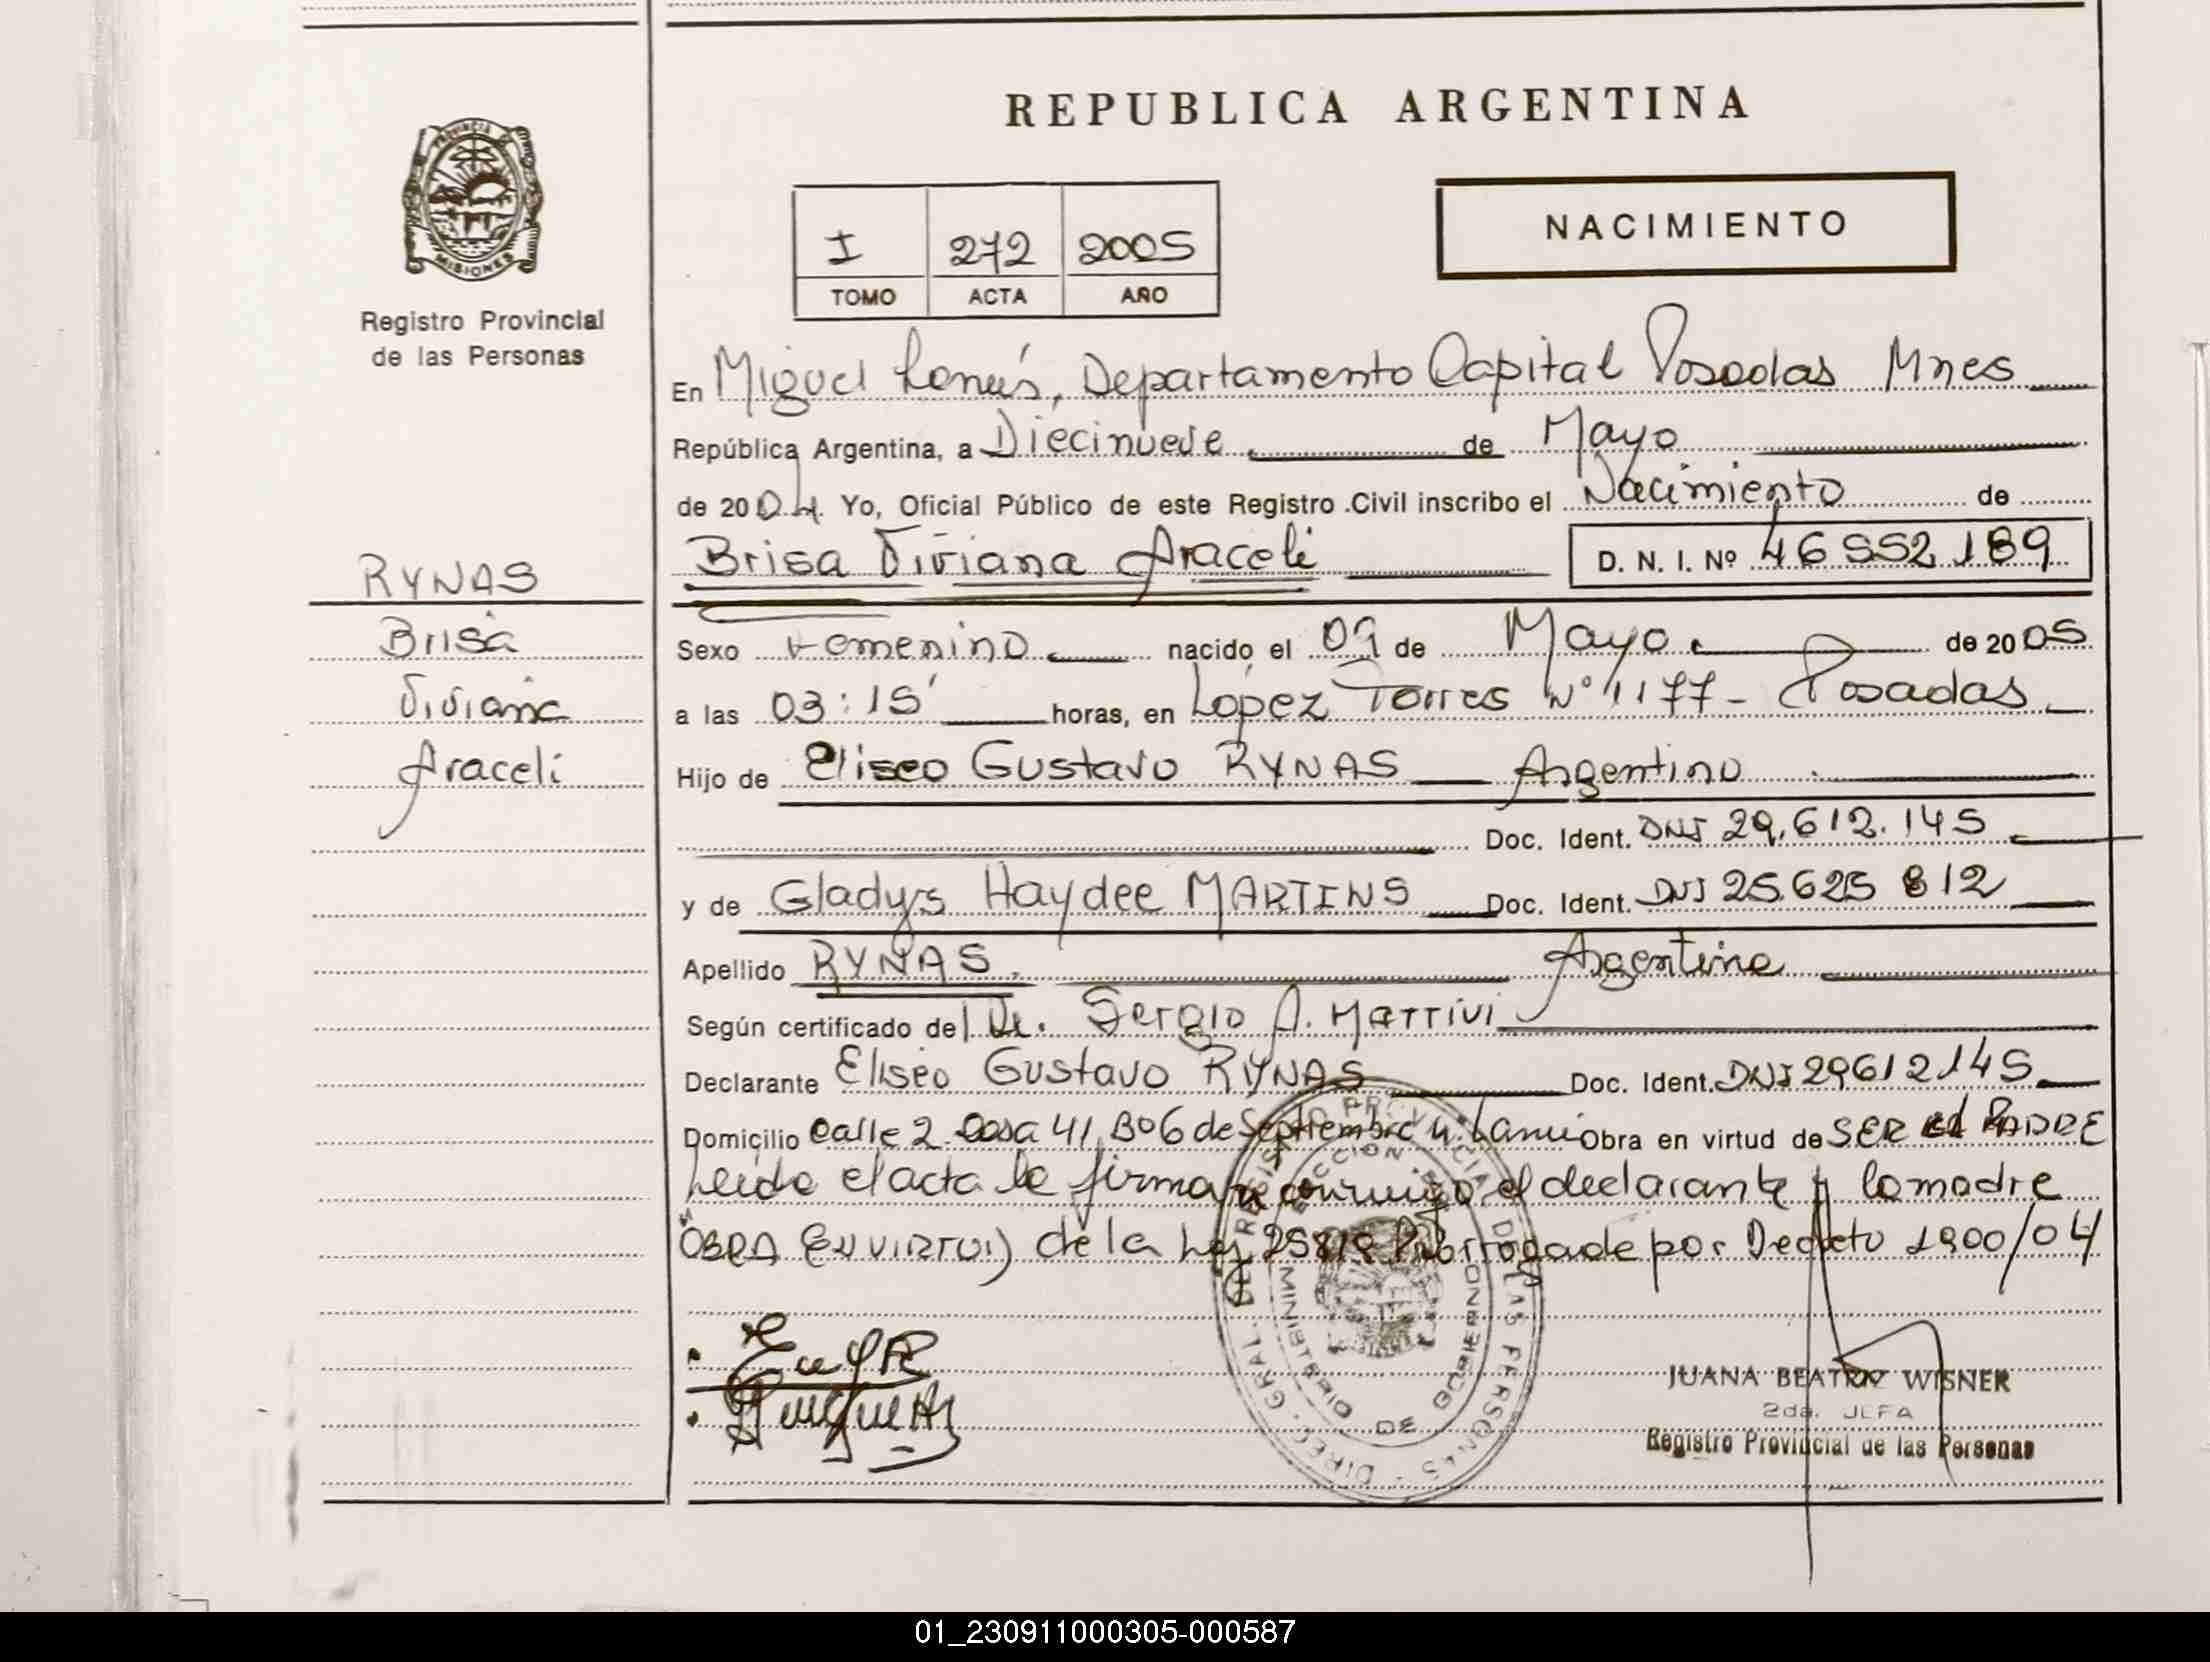 REPUBLICA ARGENTINA
PROVINCIA DE
MISIONES
Registro Provincial
de las Personas
NACIMIENTO
I 272 2005
TOMO ACTA AÑO
En Miguel Lanús, Departamento Capital Posadas Mnes
República Argentina, a Diecinueve de Mayo
de 2004 Yo, Oficial Público de este Registro Civil inscribo el Nacimiento de
Brisa Viviana Araceli D. N. I. Nº 46 552.189
RYNAS
Brisa
Viviana
Araceli
Sexo Femenino nacido el 09 de Mayo de 2005
a las 03:15' horas, en López Torres Nº 1177 - Posadas
Hijo de Eliseo Gustavo RYNAS Argentino
Doc. Ident. DNI 29.612.145
y de Gladys Haydee MARTINS Doc. Ident. DNI 25.625 812
Apellido RYNAS. Argentina
Según certificado del Dr. Sergio A. MATTIVI
Declarante Eliseo Gustavo RYNAS Doc. Ident. DNI 29612145
Domicilio Calle 2 Casa 41 Bº 6 de Septiembre M. Lanus Obra en virtud de SER el PADRE
Leída el acta la firman conmigo el declarante y la madre
"OBRA EN VIRTUD de la Ley 25819 Prorrogada por Decreto 1900/04
DIREC. GRAL. DEL REGISTRO PROVINCIAL DE LAS PERSONAS
MINISTERIO DE GOBIERNO
JUANA BEATRIZ WISNER
2da. JEFA
Registro Provincial de las Personas
01_230911000305-000587